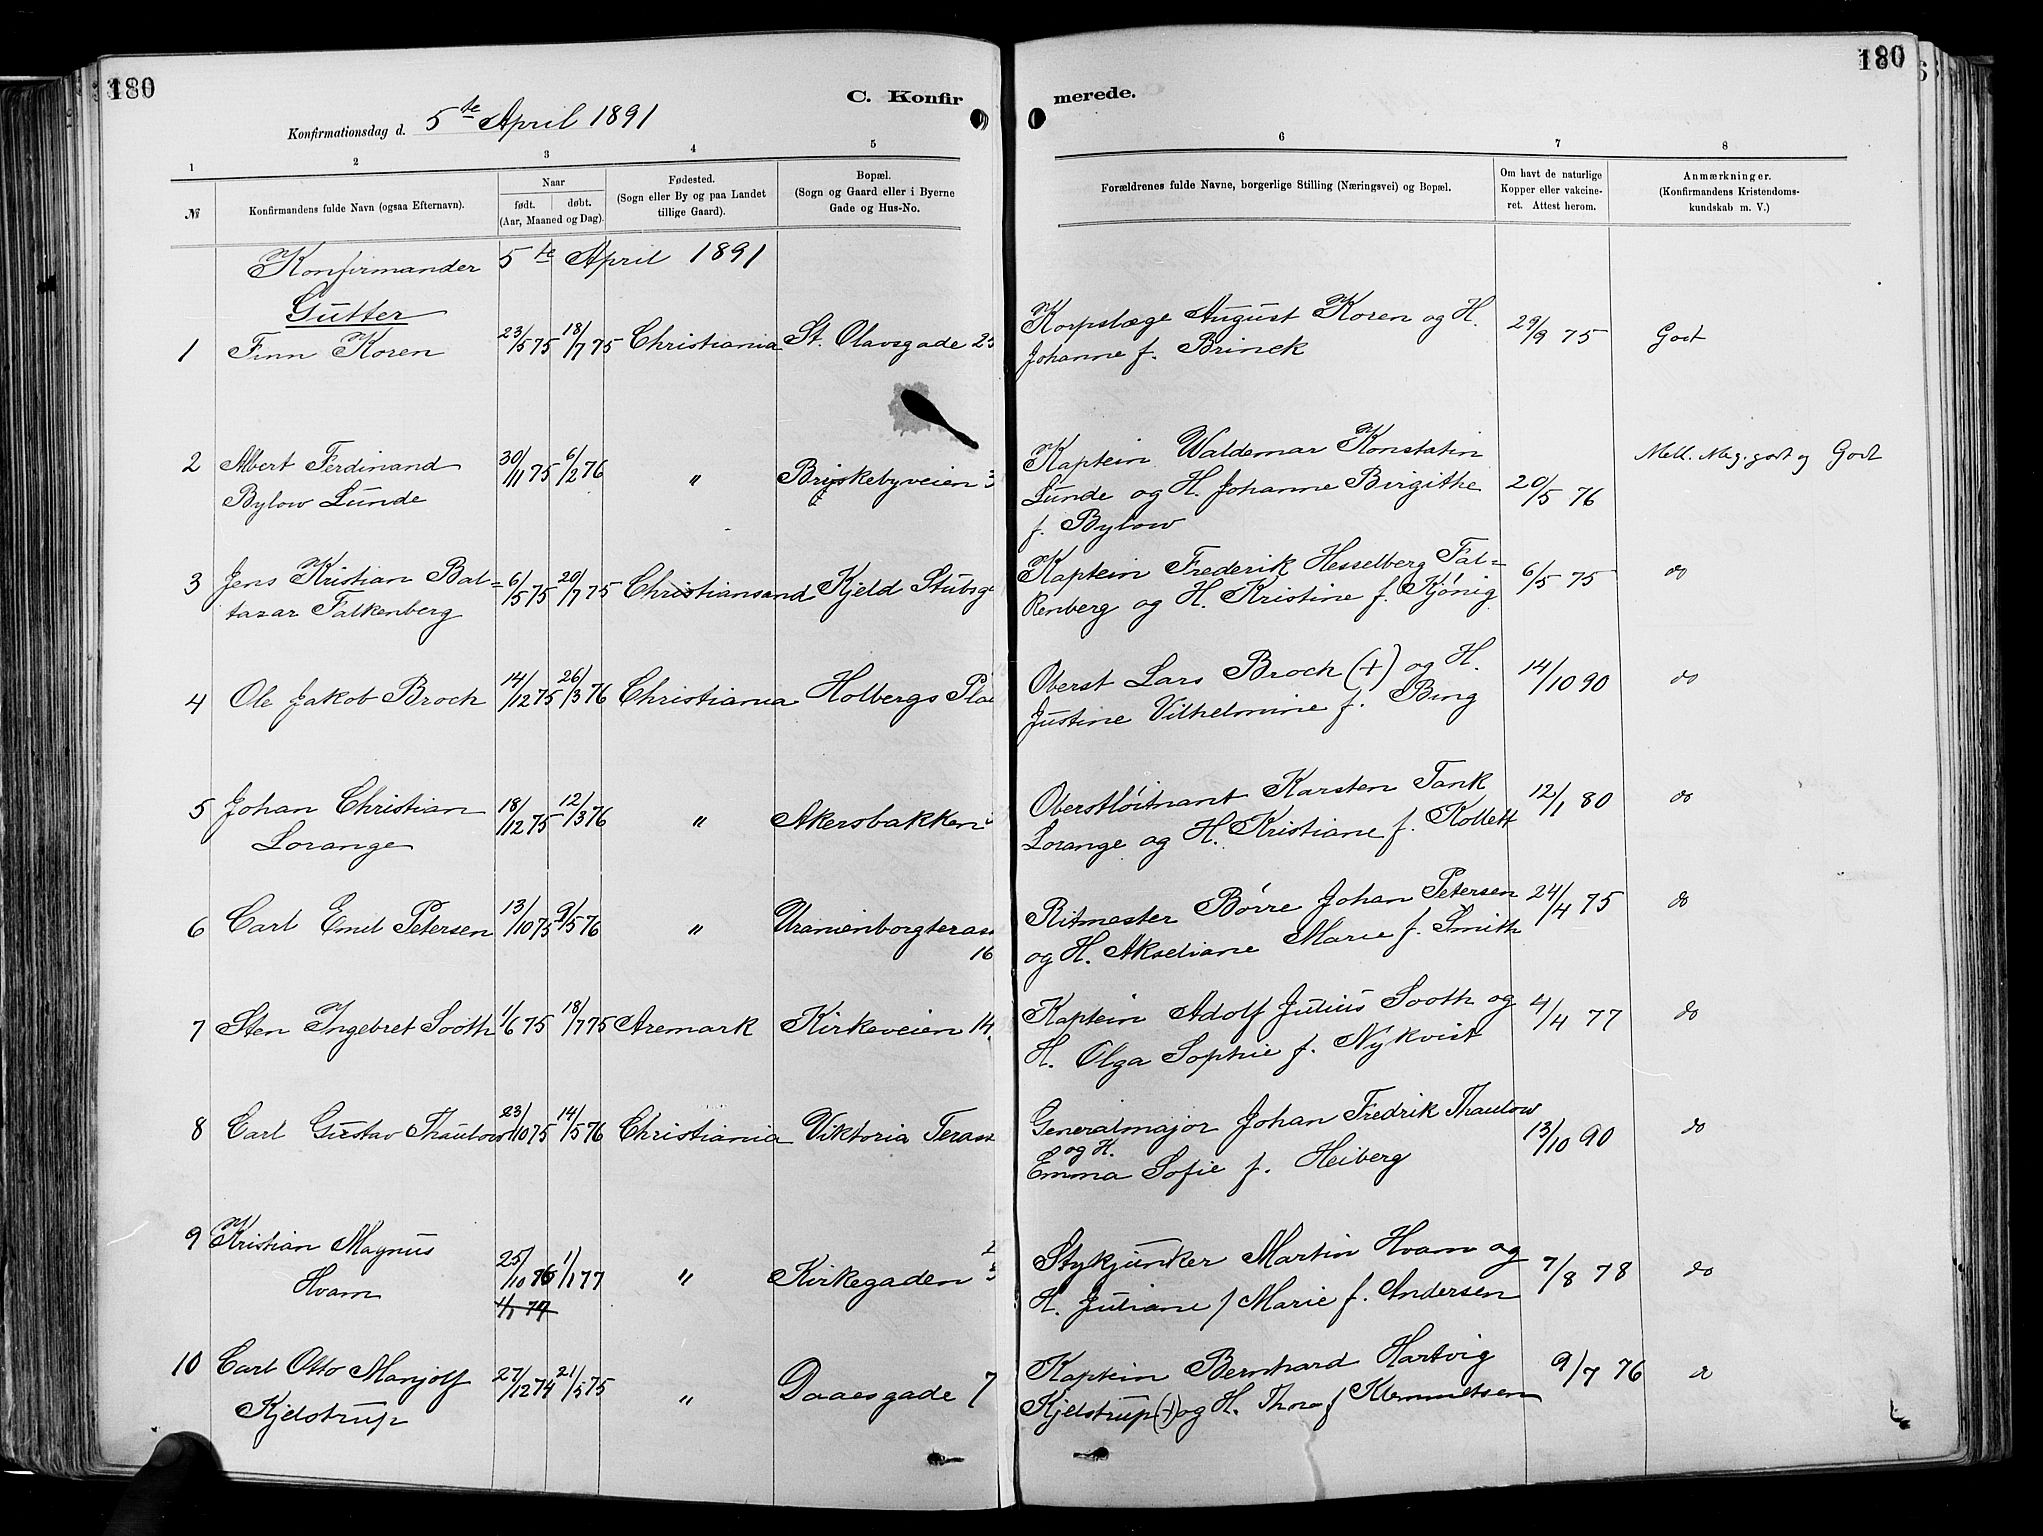 180
180
C. Konfir
merede.
Konfirmationsdag d. 5te April 1891
1 2 3 4 5 6 7 8
№ Konfirmandens fulde Navn (ogsaa Efternavn).
Naar
født. døbt.
(Aar, Maaned og Dag).
Fødested.
(Sogn eller By og paa Landet
tillige Gaard).
Bopæl.
(Sogn og Gaard eller i Byerne
Gade og Hus-No.
Forældrenes fulde Navne, borgerlige Stilling (Næringsvei) og Bopæl.
Om havt de naturlige
Kopper eller vakcine-
ret. Attest herom.
Anmærkninger.
(Konfirmandens Kristendoms-
kundskab m. V.)
Konfirmander 5te April 1891
Gutter
1 Finn Koren 23/5 75 18/7 75 Christiania St. Olavsgade 25 Korpslæge August Koren og H. 29/9 75 Godt
Johanne f. Brinck
2 Albert Ferdinand 30/11 75 6/2 76 " Briskebyveien 3 Kaptein Waldemar Konstatin Mell. Meg. godt og Godt
Bylow Lunde Lunde og H. Johanne Birgithe 20/5 76
f. Bylow
3 Jens Kristian Bal= 6/5 75 20/7 75 Christiansand Kjeld Stubsg Kaptein Frederik Hesselberg Fal= 6/5 75 do
tazar Falkenberg kenberg og H. Kristine f. Kjönig
4 Ole Jakob Broch 14/12 75 26/3 76 Christiania Holbergs Pla Oberst Lars Broch (+) og H. 14/10 90 do
Justine Vilhelmine f. Bing
5 Johan Christian 18/12 75 12/3 76 " Akersbakken Oberstløitnant Karsten Tank 12/1 80 do
Lorange Lorange og H. Kristiane f. Kollett
6 Carl Emil Petersen 13/10 75 9/5 76 " Uranienborgterass Ritmester Børre Johan Petersen 24/4 75 do
16 og H. Akseliane Marie f. Smith
7 Sten Ingebret Sooth 1/6 75 18/7 75 Aremark Kirkeveien 14. Kaptein Adolf Julius Sooth og 4/4 77 do
H. Olga Sophie f. Nykvist
8 Carl Gustav Thaulow 23/10 75 14/5 76 Christiania Viktoria Terass Generalmajor Johan Fredrik Thaulow 13/10 90 do
og H.
Emma Sofie f. Heiberg
9 Kristian Magnus 25/10 76 1/1 77 " Kirkegaden Stykjunker Martin Hvam og 7/8 78 do
Hvam 1/1 77 H. Juliane / Marie f. Andersen
10 Carl Otto Manjolf 27/12 74 21/5 75 " Daaesgade 7 Kaptein Bernhard Hartvig 9/7 76 do
Kjelstrup Kjelstrup (+) og H. Thora f Klemmetsen